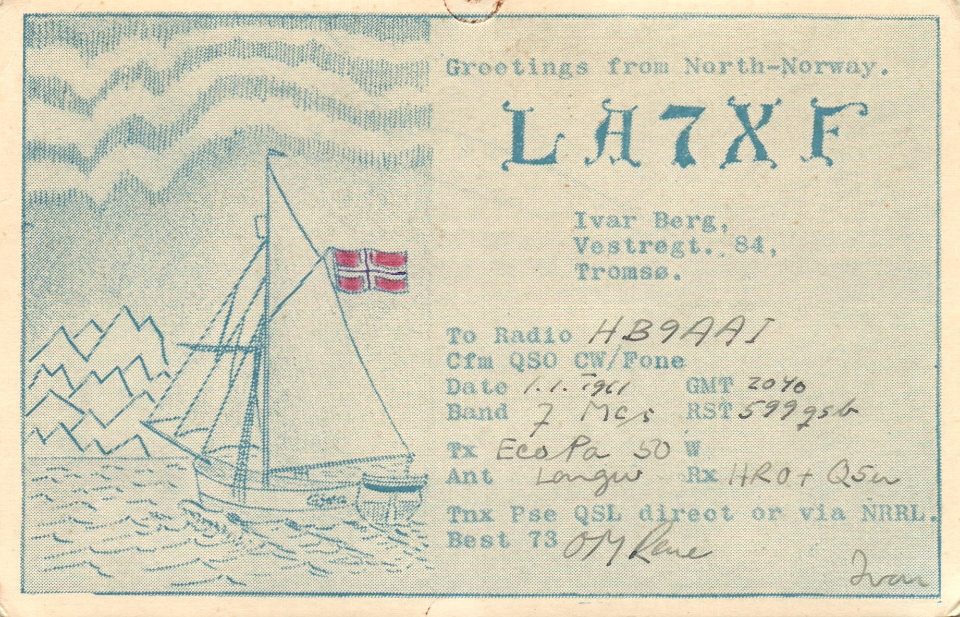 Greetings from North-Norway.
LA7XF
Ivar Berg,
Vestregt. 84,
Tromsø.
To Radio HB9AAI
Cfm QSO CW/Fone
Date 1.1. 1961 GMT 2040
Band 7 Mcs RST 599 gsb
Tx EcoPa 50 W
Ant Longw Rx HRO + Q5er
Tnx Pse QSL direct or via NRRL.
Best 73 OM Rene
Ivar